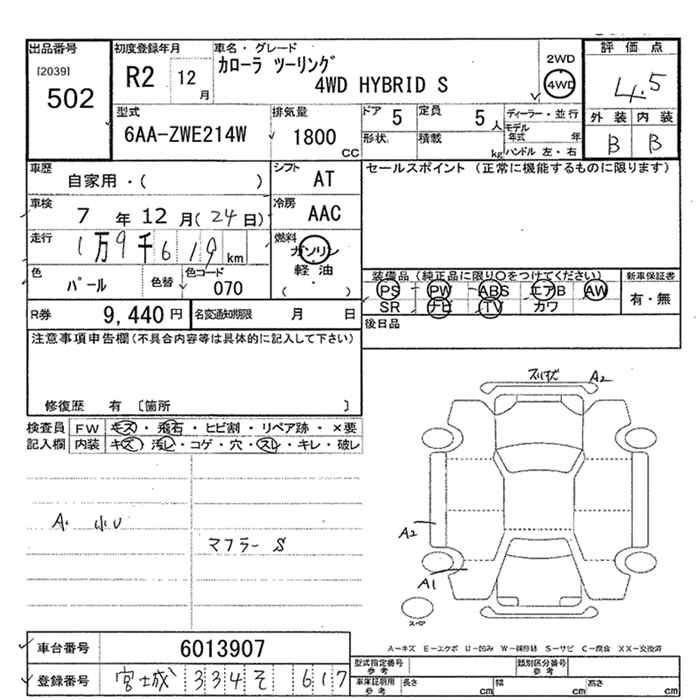 出品番号 初度登録年月 車名・グレード 評価点
[2039] 502 R2 12月 カローラ ツーリング 2WD
4WD HYBRID S 4WD 4.5
型式 排気量 ドア 5 定員 5人 ディーラー・並行 外装 内装
6AA-ZWE214W 1800CC 形状 積載 kg モデル年式 年 B B
ハンドル 左・右
車歴 シフト セールスポイント (正常に機能するものに限ります)
自家用・( ) AT
車検 7年12月(24日) 冷房 AAC
走行 1万9千619km 燃料 ガソリン
軽油
( )
色 パール 色替 色コード 070 装備品 (純正品に限り○をつけてください) 新車保証書
PS PW ABS エアB AW 有・無
R券 9,440円 名変通知期限 月 日 SR ナビ TV カワ
後日品
注意事項申告欄(不具合内容等は具体的に記入して下さい)
修復歴 有 〔箇所 〕
検査員 FW キズ・飛石・ヒビ割・リペア跡・×要
記入欄 内装 キズ・汚レ・コゲ・穴・スレ・キレ・破レ
A2
A・小U
マフラー S
A2
A1
スペア
A-キズ E-エクボ U-凹み W-補修跡 S-サビ C-腐食 XX-交換済
車台番号 6013907
型式指定番号 参考 類別区分番号 参考
登録番号 宮城 334 そ 617
車庫証明用 参考 長さ cm 幅 cm 高さ cm